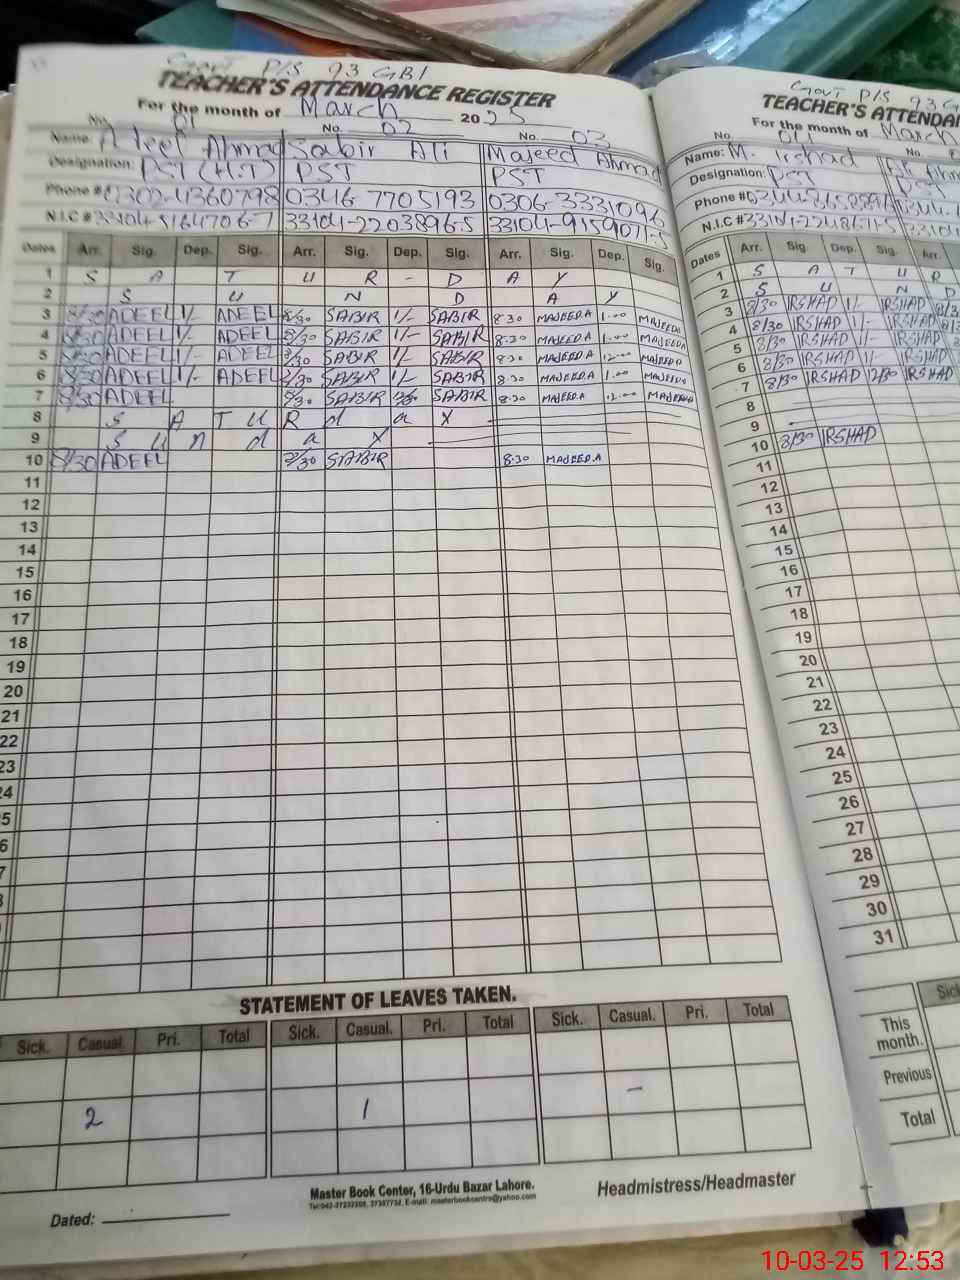 Govt P/S 93 GB1
TEACHER'S ATTENDANCE REGISTER
For the month of March 2025
No. 01 No. 02 No. 03
Name: Adeel Ahmad Sabir Ali Majeed Ahmad
Designation: PST (H.T) PST PST
Phone # 0302-4360798 0346 7705193 0306-3331096
N.I.C # 33104-5164706-7 33104-2203896-5 33104-9159071-5
Dates Arr. Sig. Dep. Sig. Arr. Sig. Dep. Sig. Arr. Sig. Dep. Sig.
1 S A T U R - D A Y
2 S U N D A Y
3 8/30 ADEEL 1/- ADEEL 8/30 SABIR 1/- SABIR 8.30 MAJEED.A 1.00 MAJEED.A
4 8/30 ADEEL 1/- ADEEL 8/30 SABIR 1/- SABIR 8.30 MAJEED.A 1.00 MAJEED.A
5 8/30 ADEEL 1/- ADEEL 8/30 SABIR 1/- SABIR 8.30 MAJEED.A 12.00 MAJEED.A
6 8/30 ADEEL 1/- ADEEL 8/30 SABIR 1/- SABIR 8.30 MAJEED.A 1.00 MAJEED.A
7 8/30 ADEEL 8/30 SABIR SABIR 8.30 MAJEED.A 12.00 MAJEED.A
8 S A T U R d a y
9 S U n d a y
10 8/30 ADEEL 8/30 SABIR 8.30 MAJEED.A
11
12
13
14
15
16
17
18
19
20
21
22
23
24
5
6
7
STATEMENT OF LEAVES TAKEN.
Sick. Casual. Pri. Total Sick. Casual. Pri. Total Sick. Casual. Pri. Total
2 1 -
Master Book Center, 16-Urdu Bazar Lahore.
Dated: Headmistress/Headmaster
Govt P/S 93 G
TEACHER'S ATTENDA
For the month of March
No. 04 No.
Name: M. Irshad
Designation: PST
Phone #
N.I.C # 33104-2248671-5 33101
Dates Arr. Sig. Dep. Sig. Arr.
1 S A T U R
2 S U N D
3 8/30 IRSHAD 1/- IRSHAD 8/3
4 8/30 IRSHAD 1/- IRSHAD
5 8/30 IRSHAD 1/- IRSHAD
6 8/30 IRSHAD 1/- IRSHAD
7 8/30 IRSHAD 12/30 IRSHAD
8
9
10 8/30 IRSHAD
11
12
13
14
15
16
17
18
19
20
21
22
23
24
25
26
27
28
29
30
31
Sick
This month.
Previous
Total
10-03-25 12:53